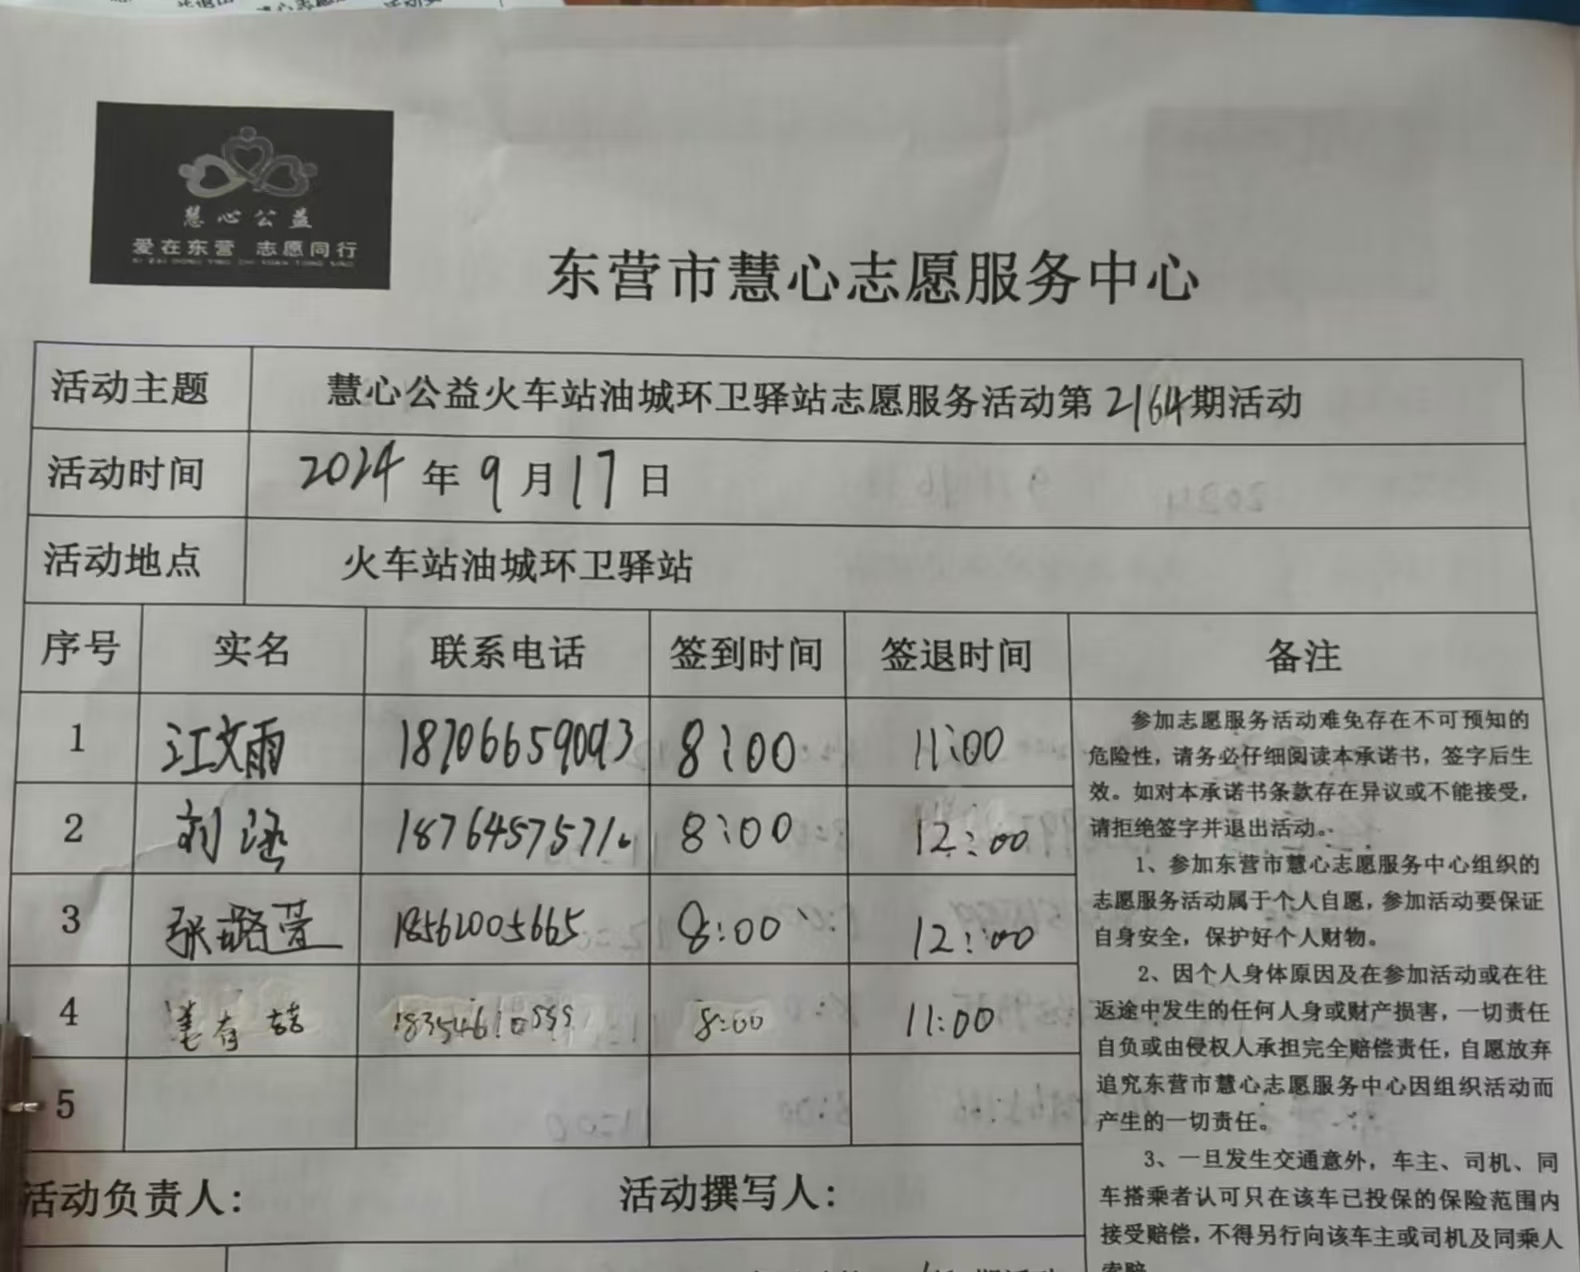 慧心公益
爱在东营 志愿同行
AI ZAI DONG YING ZHI YUAN TONG XING
东营市慧心志愿服务中心
活动主题 慧心公益火车站油城环卫驿站志愿服务活动第2164期活动
活动时间 2024年9月17日
活动地点 火车站油城环卫驿站
序号 实名 联系电话 签到时间 签退时间 备注
1 江文雨 18706659093 8:00 11:00
2 刘涵 1876457571 8:00 12:00
3 张璐萱 18562005665 8:00 12:00
4 姜存喆 8:00 11:00
5
参加志愿服务活动难免存在不可预知的
危险性，请务必仔细阅读本承诺书，签字后生
效。如对本承诺书条款存在异议或不能接受，
请拒绝签字并退出活动。
1、参加东营市慧心志愿服务中心组织的
志愿服务活动属于个人自愿，参加活动要保证
自身安全，保护好个人财物。
2、因个人身体原因及在参加活动或在往
返途中发生的任何人身或财产损害，一切责任
自负或由侵权人承担完全赔偿责任，自愿放弃
追究东营市慧心志愿服务中心因组织活动而
产生的一切责任。
3、一旦发生交通意外，车主、司机、同
车搭乘者认可只在该车已投保的保险范围内
接受赔偿，不得另行向该车主或司机及同乘人
索赔
活动负责人： 活动撰写人：
期活动